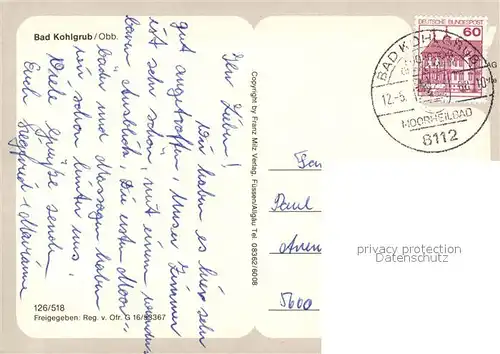 Bad Kohlgrub/Obb.
Ihr Lieben!
Wir haben es hier sehr
gut angetroffen, unser Zimmer
ist sehr schön, mit einem wunder-
baren Ausblick. Die ersten Moor-
bäder und Massagen haben
wir schon hinter uns.
Viele Grüße senden
Euch Siegfried + Marianne
126/518
Freigegeben: Reg. v. Ofr. G 16/
Copyright by Franz Milz Verlag, Füssen/Allgäu Tel. 08362/6008
DEUTSCHE BUNDESPOST
60
BAD KOHLGRUB
12.-5.
MOORHEILBAD
8112
Paul
5600
privacy protection
Datenschutz